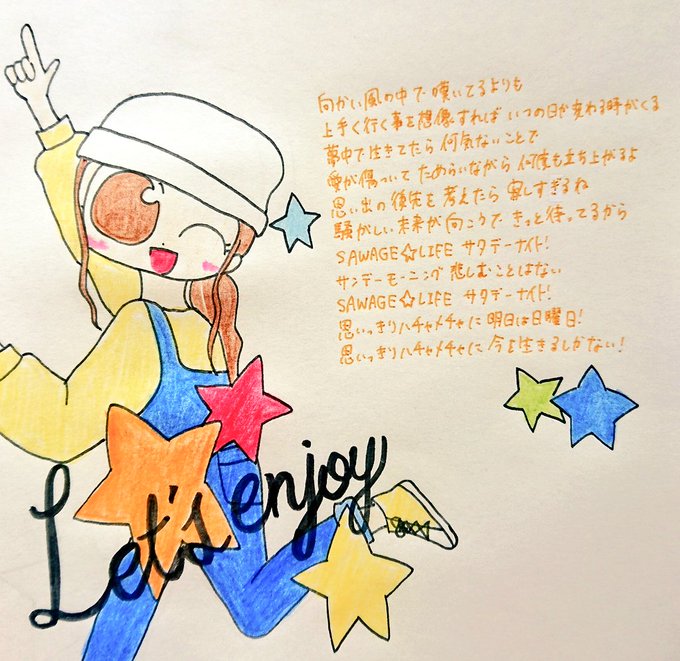 向かい風の中で嘆いてるよりも
上手く行く事を想像すれば いつの日か変わる時がくる
夢中で生きてたら 何気ないことで
愛が傷ついて ためらいながら 何度も立ち上がるよ
思い出の後先を 考えたら 寂しすぎるね
騒がしい未来が向こうで きっと待ってるから
SAWAGE☆LIFE サタデーナイト!
サンデーモーニング 悲しむことはない
SAWAGE☆LIFE サタデーナイト!
思いっきりハチャメチャに 明日は日曜日!
思いっきりハチャメチャに 今を生きるしかない!
Let's enjoy